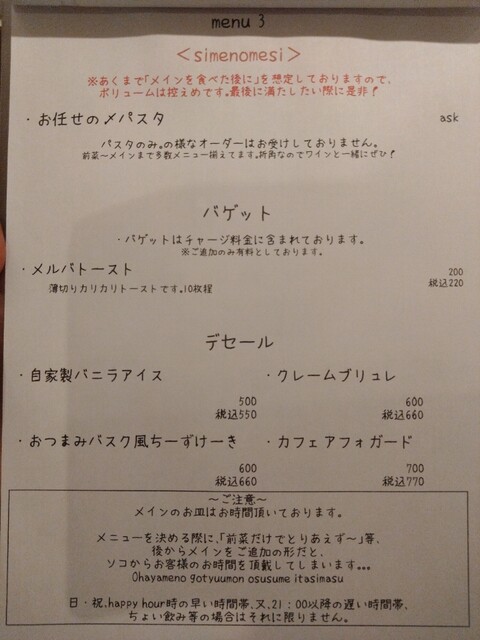 menu 3
＜simenomesi＞
※あくまで「メインを食べた後に」を想定しておりますので、
ボリュームは控えめです。最後に満たしたい際に是非！
・お任せの〆パスタ ask
パスタのみ。の様なオーダーはお受けしておりません。
前菜〜メインまで多数メニュー揃えてます。折角なのでワインと一緒にぜひ！
バゲット
・バゲットはチャージ料金に含まれております。
※ご追加のみ有料としております。
・メルバトースト 200
薄切りカリカリトーストです。10枚程 税込220
デセール
・自家製バニラアイス ・クレームブリュレ
500 600
税込550 税込660
・おつまみバスク風ちーずけーき ・カフェアフォガード
600 700
税込660 税込770
〜ご注意〜
メインのお皿はお時間頂いております。
メニューを決める際に、「前菜だけでとりあえず〜」等、
後からメインをご追加の形だと、
ソコからお客様のお時間を頂戴してしまいます。。。
Ohayameno gotyuumon osusume itasimasu
日・祝、happy hour時の早い時間帯、又、21：00以降の遅い時間帯、
ちょい飲み等の場合はそれに限りません。